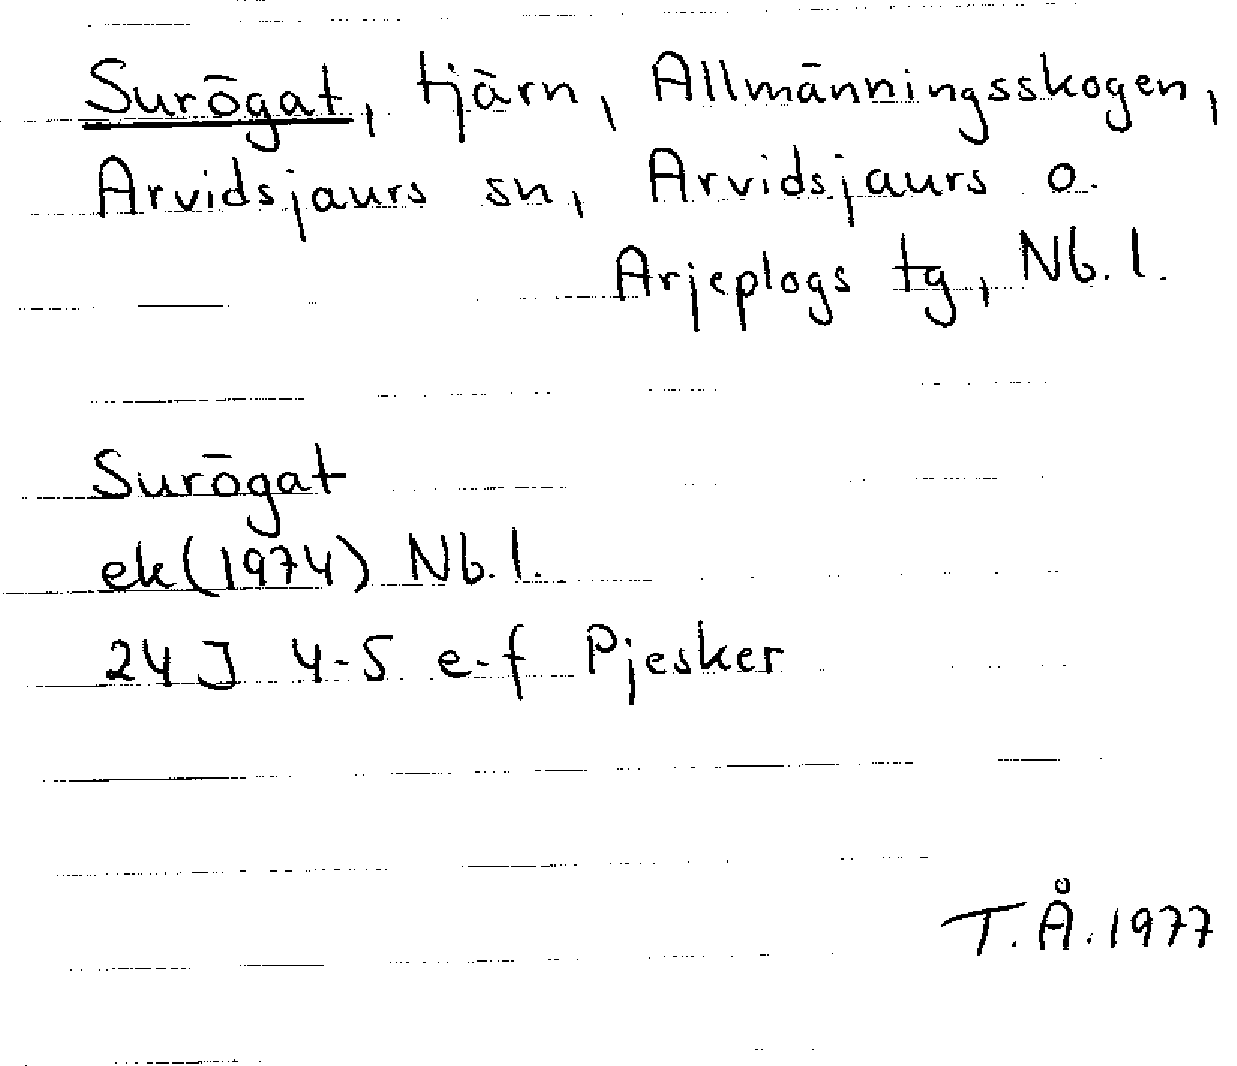 Surögat, tjärn, Allmänningsskogen,
Arvidsjaurs sn, Arvidsjaurs o.
Arjeplogs tg, Nb. l.
Surögat
ek (1974) Nb. l.
24 J 4-5 e-f Pjesker
T. Å. 1977